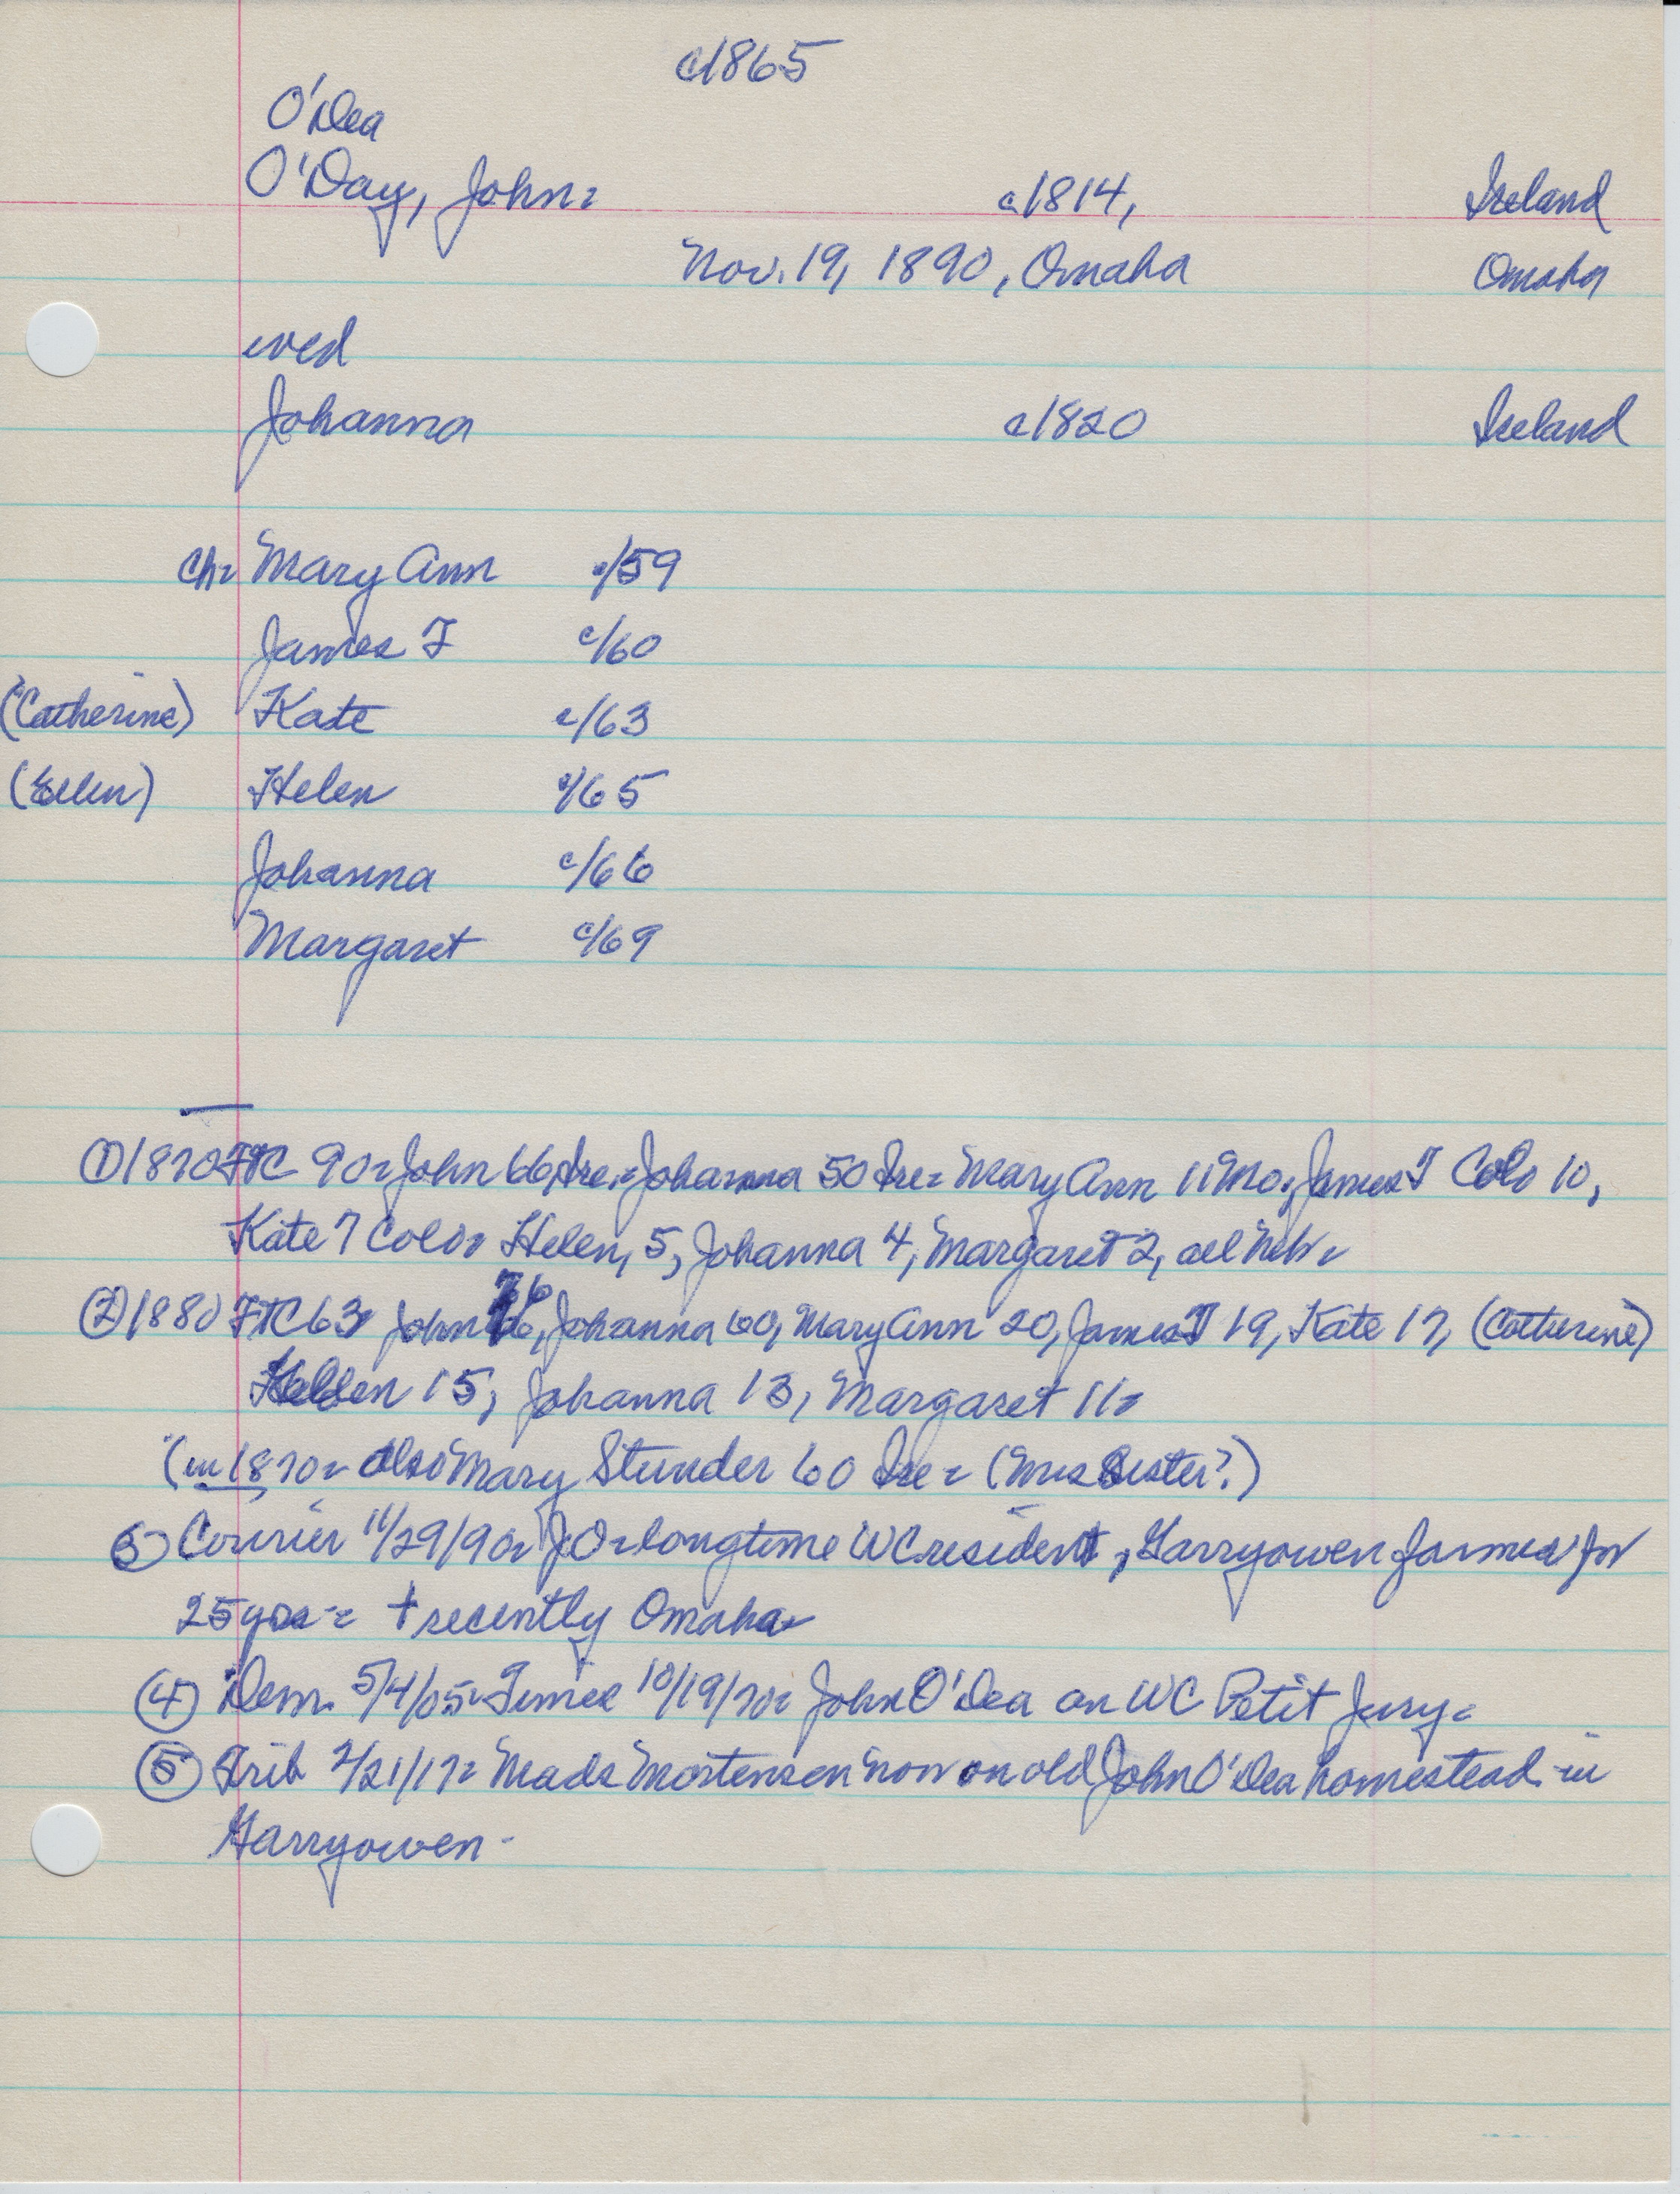 c1865
O'Dea
O'Day, John= c1814, Ireland
Nov. 19, 1890, Omaha Omaha
wed
Johanna c1820 Ireland
ch= Mary Ann c/59
James T c/60
(Catherine) Kate c/63
(Ellen) Helen c/65
Johanna c/66
Margaret c/69
① 1870 FTC 90= John 66 Ire.= Johanna 50 Ire= Mary Ann 11 Mo., James T Colo 10,
Kate 7 Colo= Helen, 5, Johanna 4, Margaret 2, all Neb=
② 1880 FTC 63= John 76, Johanna 60, Mary Ann 20, James T 19, Kate 17, (Catherine)
Helen 15, Johanna 13, Margaret 11=
(in 1870= also Mary Stunder 60 Ire= (Mrs Sister?)
③ Courier 11/29/90= JO= longtime WC resident, Garryowen farmed for
25 yrs= + recently Omaha=
④ Dem. 5/4/05= Times 10/19/70= John O'Dea on WC Petit Jury=
⑤ Trib 2/21/17= Mads Mortensen now on old John O'Dea homestead in
Garryowen-